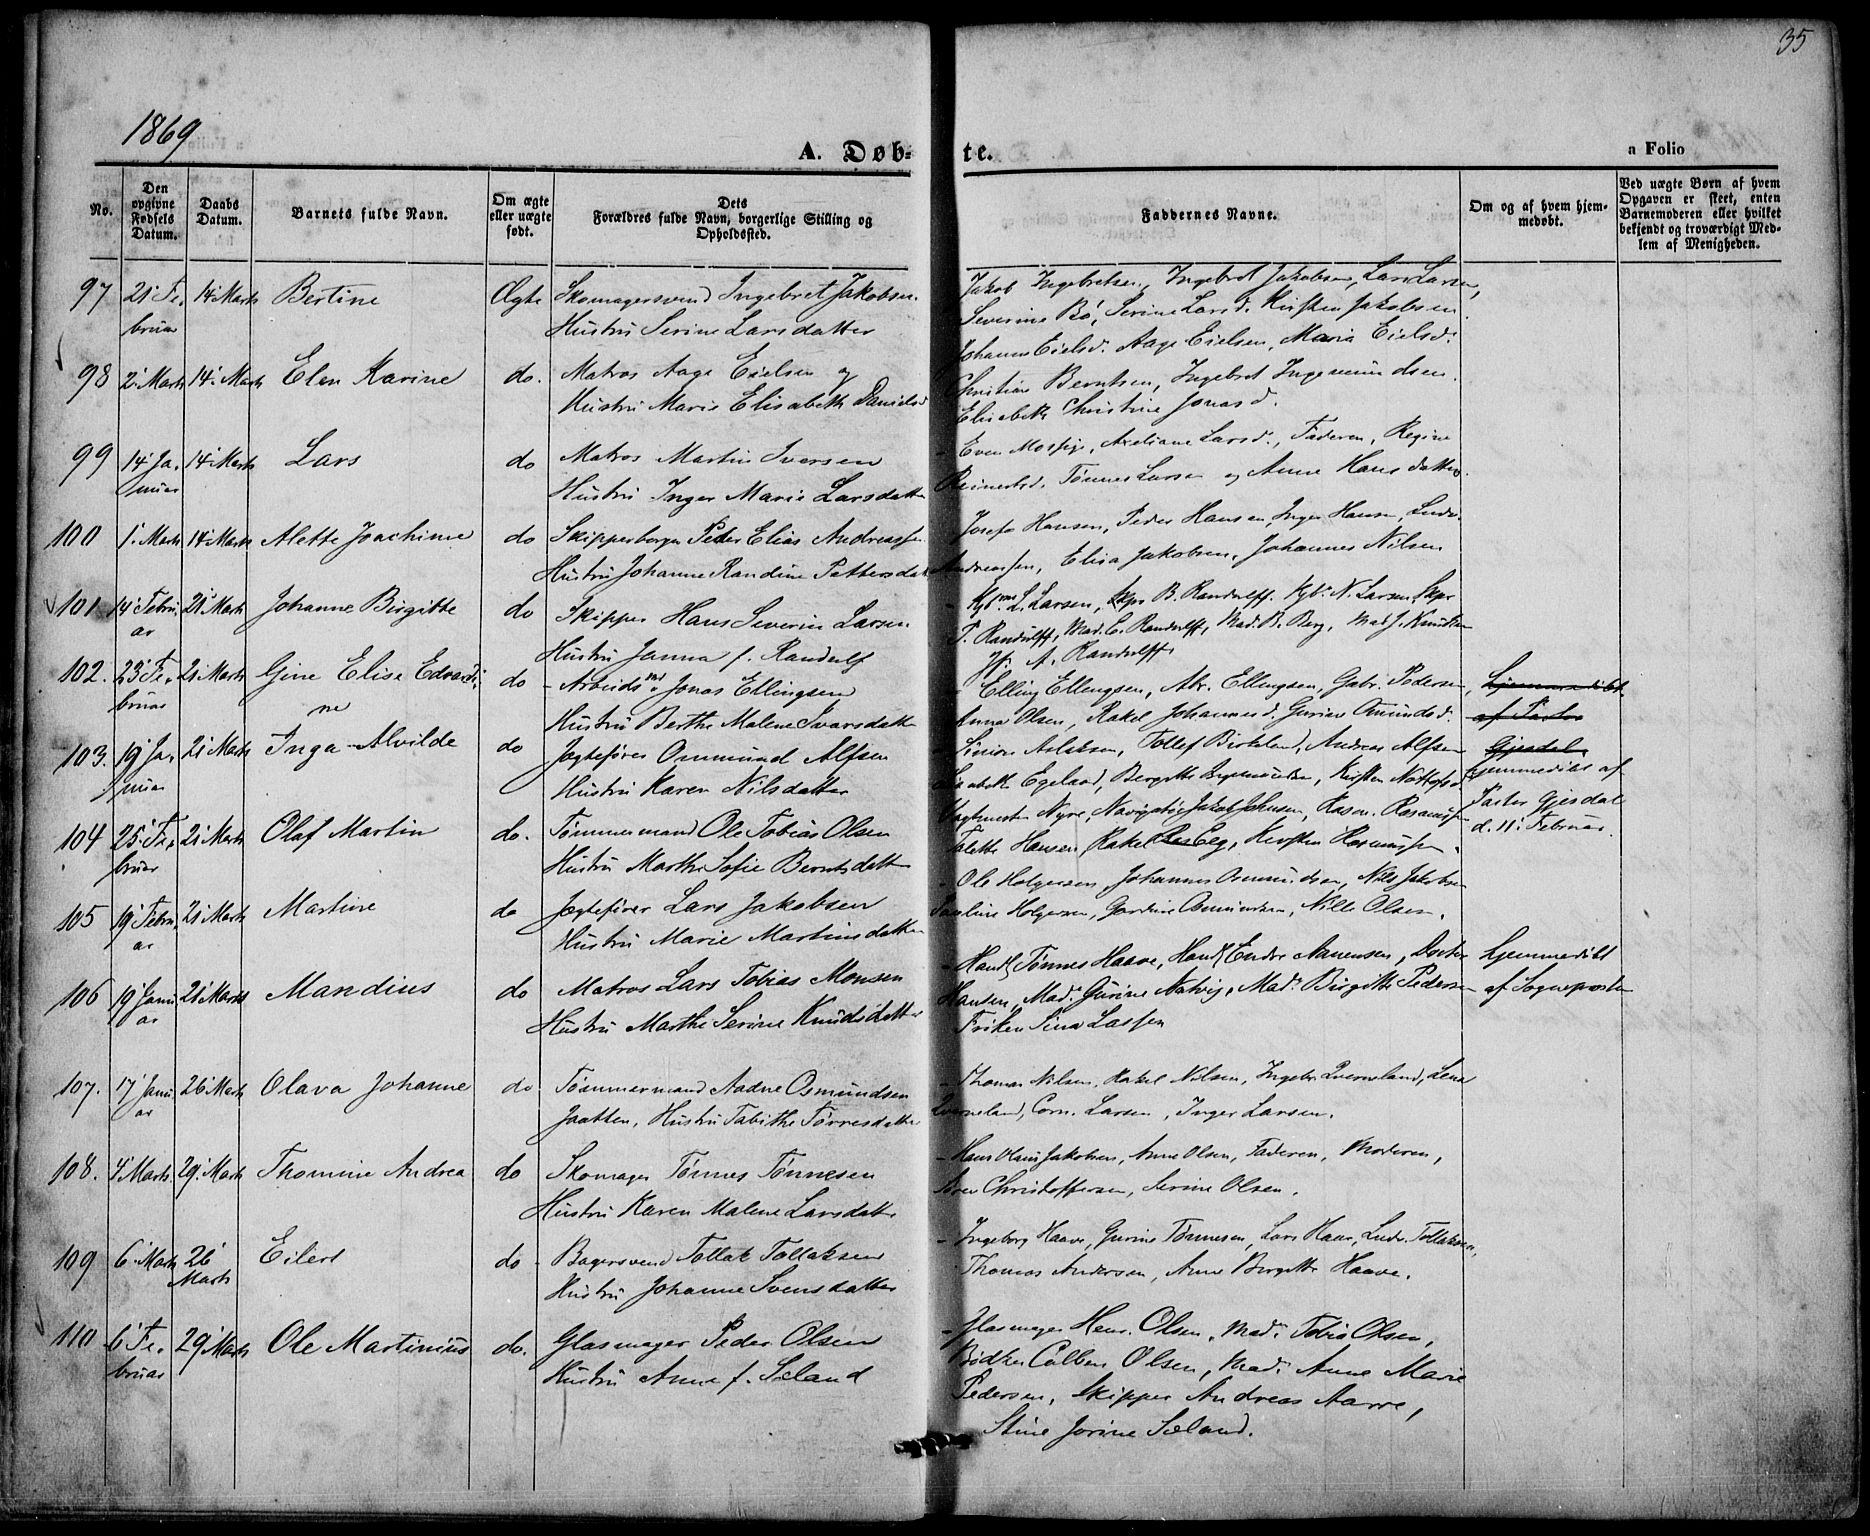 35
1869
A. Døb- te.
a Folio
No.
Den opgivne Fødsels Datum.
Daabs Datum.
Barnets fulde Navn.
Om ægte eller uægte født.
Dets Forældres fulde Navn, borgerlige Stilling og Opholdssted.
Faddernes Navne.
Om og af hvem hjemmedøbt.
Ved uægte Børn af hvem Opgaven er skeet, enten Barnemoderen eller hvilket bekjendt og troværdigt Medlem af Menigheden.
97 21' Fe, 14' Marts Bertine Ægte Skomagersvend Ingebret Jakobsen Jakob Ingebretsen, Ingebret Jakobsen, Lars Larsen,
bruar Hustru Serine Larsdatter Severine Bø, Serine Larsd. Kirsten Jakobsen
Johannes Eielsd. Aage Eielsen, Maria Eielsd.
98 2' Marts 14' Marts Elen Karine do. Matros Aage Eielsen og Christian Berntsen, Ingebret Ingemundsen
Hustru Marie Elisabeth Danielsd Elisabeth Christine Jonasd.
99 14' Ja, 14' Marts Lars do Matros Martin Iversen Even Mossige, Axeliane Larsd., Faderen, Regine
nuar Hustru Inger Marie Larsdatter Reinertsd. Tønnes Larsen og Anne Hansdatter
100 1' Marts 14' Marts Alette Joachime do Skipperborger Peder Elias Andreassen Josefa Hansen, Peder Hansen, Inger Hansen, Ludv.
Hustru Johanne Randine Pettersdat Andreassen, Elisa Jakobsen, Johannes Nilsen
101 14' Febru 21' Marts Johanne Birgitte do Skipper Hans Severin Larsen L. Larsen, Skpr B. Randulff. Kjbm N. Larsen, Skpr
ar Hustru Janna f. Randulf P. Randulff, Mad. C. Randulff, Mad. B. Berg, Mad J. Knudsen
A. Randulff
102. 23' Fe, 21' Marts Gine Elise Edvardi, do Arbeidsmd Jonas Ellingsen Elling Ellengsen, Abr. Ellengsen, Gabr. Pedersen, Hjemmedøbt
bruar ne Hustru Berthe Malene Ivarsdatter Anna Olsen, Rakel Johannesd. Gurine Omundsd. af Pastor
103. 19' Ja, 21' Marts Inga Alvilde do Jægtefører Ommund Alfsen Simon Aslaksen, Tollef Birkeland, Andreas Alfsen Gjesdal
nuar Hustru Karen Nilsdatter Lisabeth Egeland, Bergitte Ingemundsen, Kirsten hjemmedøbt af
Pastor Gjesdal
104 25' Fe, 21' Marts Olaf Martin do. Tømmermand Ole Tobias Olsen Vagtmester Nyre, Jakob Johnsen, Rasm. Rasmussen d. 11' Februar.
bruar Hustru Marthe Sofie Berntsdatter Talette Hansen, Rakel Eeg, Kirsten Rasmussen.
105 19' Febru, 21' Marts Martine do Jægtefører Lars Jakobsen Ole Holgersen, Johannes Osmundsen, Nils Jakobsen
ar Hustru Marie Martinsdatter Pauline Holgersen, Gurine Osmundsen, Nille Olsen.
106 19' Janu 21' Marts Mandius do Matros Lars Tobias Monsen Handl Tønnes Haave, Handl Endre Aanensen, Hjemmedøbt
ar Hustru Marthe Serine Knudsdatter Hansen, Mad. Gurine Natvig, Mad. Birgitte Pedersen af Sognepresten
Frøken Sina Lassen
107. 17' Janu 26' Marts Olava Johanne do Tømmermand Aadne Osmundsen Thomas Nilsen, Rakel Nilsen, Ingebr. Qverneland, Lena
ar Jaatten, Hustru Tabithe Tørresdatter Qverneland, Corn. Larsen, Inger Larsen.
108. 4' Marts. 29' Marts Thomine Andrea do Skomager Tønnes Tønnesen Hans Olaus Jakobsen, Anne Olsen, Faderen, Moderen,
Hustru Karen Malene Larsdatter Søren Christoffersen, Serine Olsen.
109 6' Marts 26' Eilert do Bagersvend Tollak Tollaksen Ingeborg Haave, Gurine Tønnesen, Lars Haave, Ludv. Tollaksen,
Marts Hustru Johanne Svensdatter Thomas Andersen, Anne Bergitte Haave.
110 6' Fe. 29' Marts Ole Martinius do. Glasmager Peder Olsen Glasmager Henr. Olsen, Mad. Tobia Olsen,
bruar Hustru Anne f. Sæland Bødker Colben Olsen, Mad. Anne Marie
Pedersen, Skipper Andreas Aarre,
Stine Jorine Sæland.